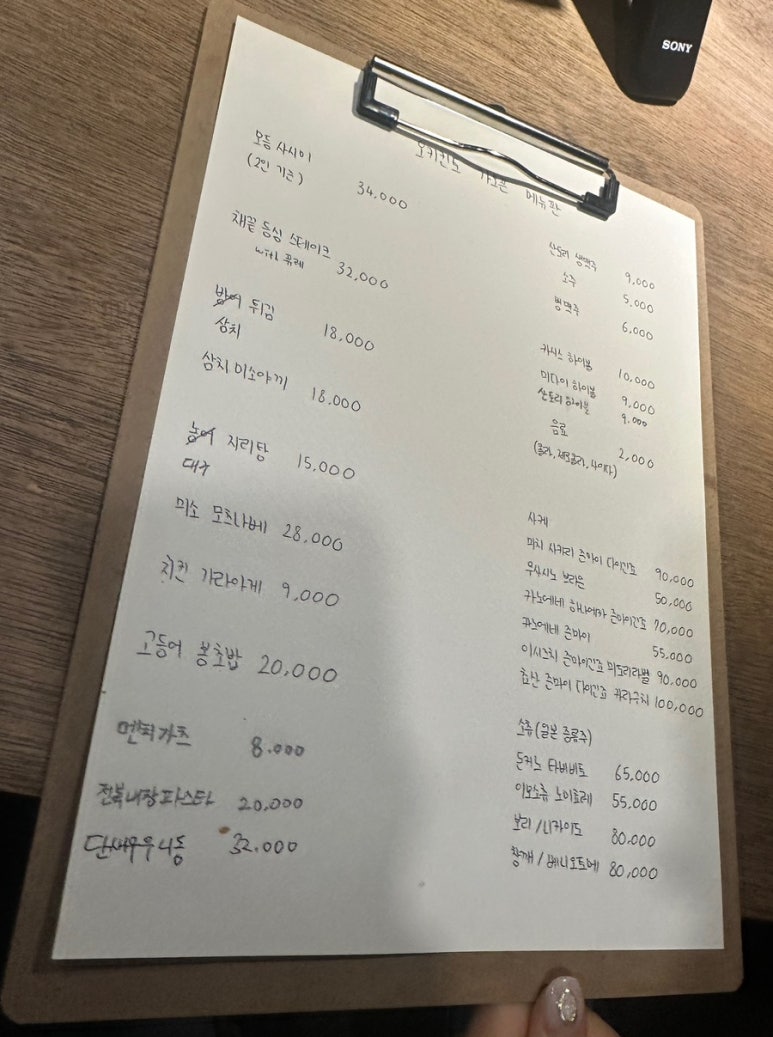 SONY
오키친노 가그린 메뉴판
모듬 사시미
(2인 기준)
34,000
채끝 등심 스테이크
with 퓨레
32,000
방어 튀김
삼치
18,000
삼치 미소야끼
18,000
농어 지리탕
대구
15,000
미소 모츠나베 28,000
치킨 가라아게 9,000
고등어 봉초밥 20,000
멘치가츠 8.000
전복내장파스타 20,000
단새우우니동 32.000
산토리 생맥주 9,000
소주 5,000
병맥주 6,000
카시스 하이볼 10,000
미도리 하이볼 9,000
산토리 하이볼 9.000
음료 2,000
(콜라, 제로콜라, 사이다)
사케
미치 사카리 준마이 다이긴죠 90,000
무사시노 브라운 50,000
카노에네 하나에카 준마이긴죠 70,000
카노에네 준마이 55,000
이시즈치 준마이긴죠 미도리라벨 90,000
쵸산 준마이 다이긴죠 카라구치 100,000
소츄 (일본 증류주)
돈카노 타바비토 65,000
이모소츄 노이효레 55,000
보리 / 니카이도 80.000
참깨 / 베니오토메 80,000